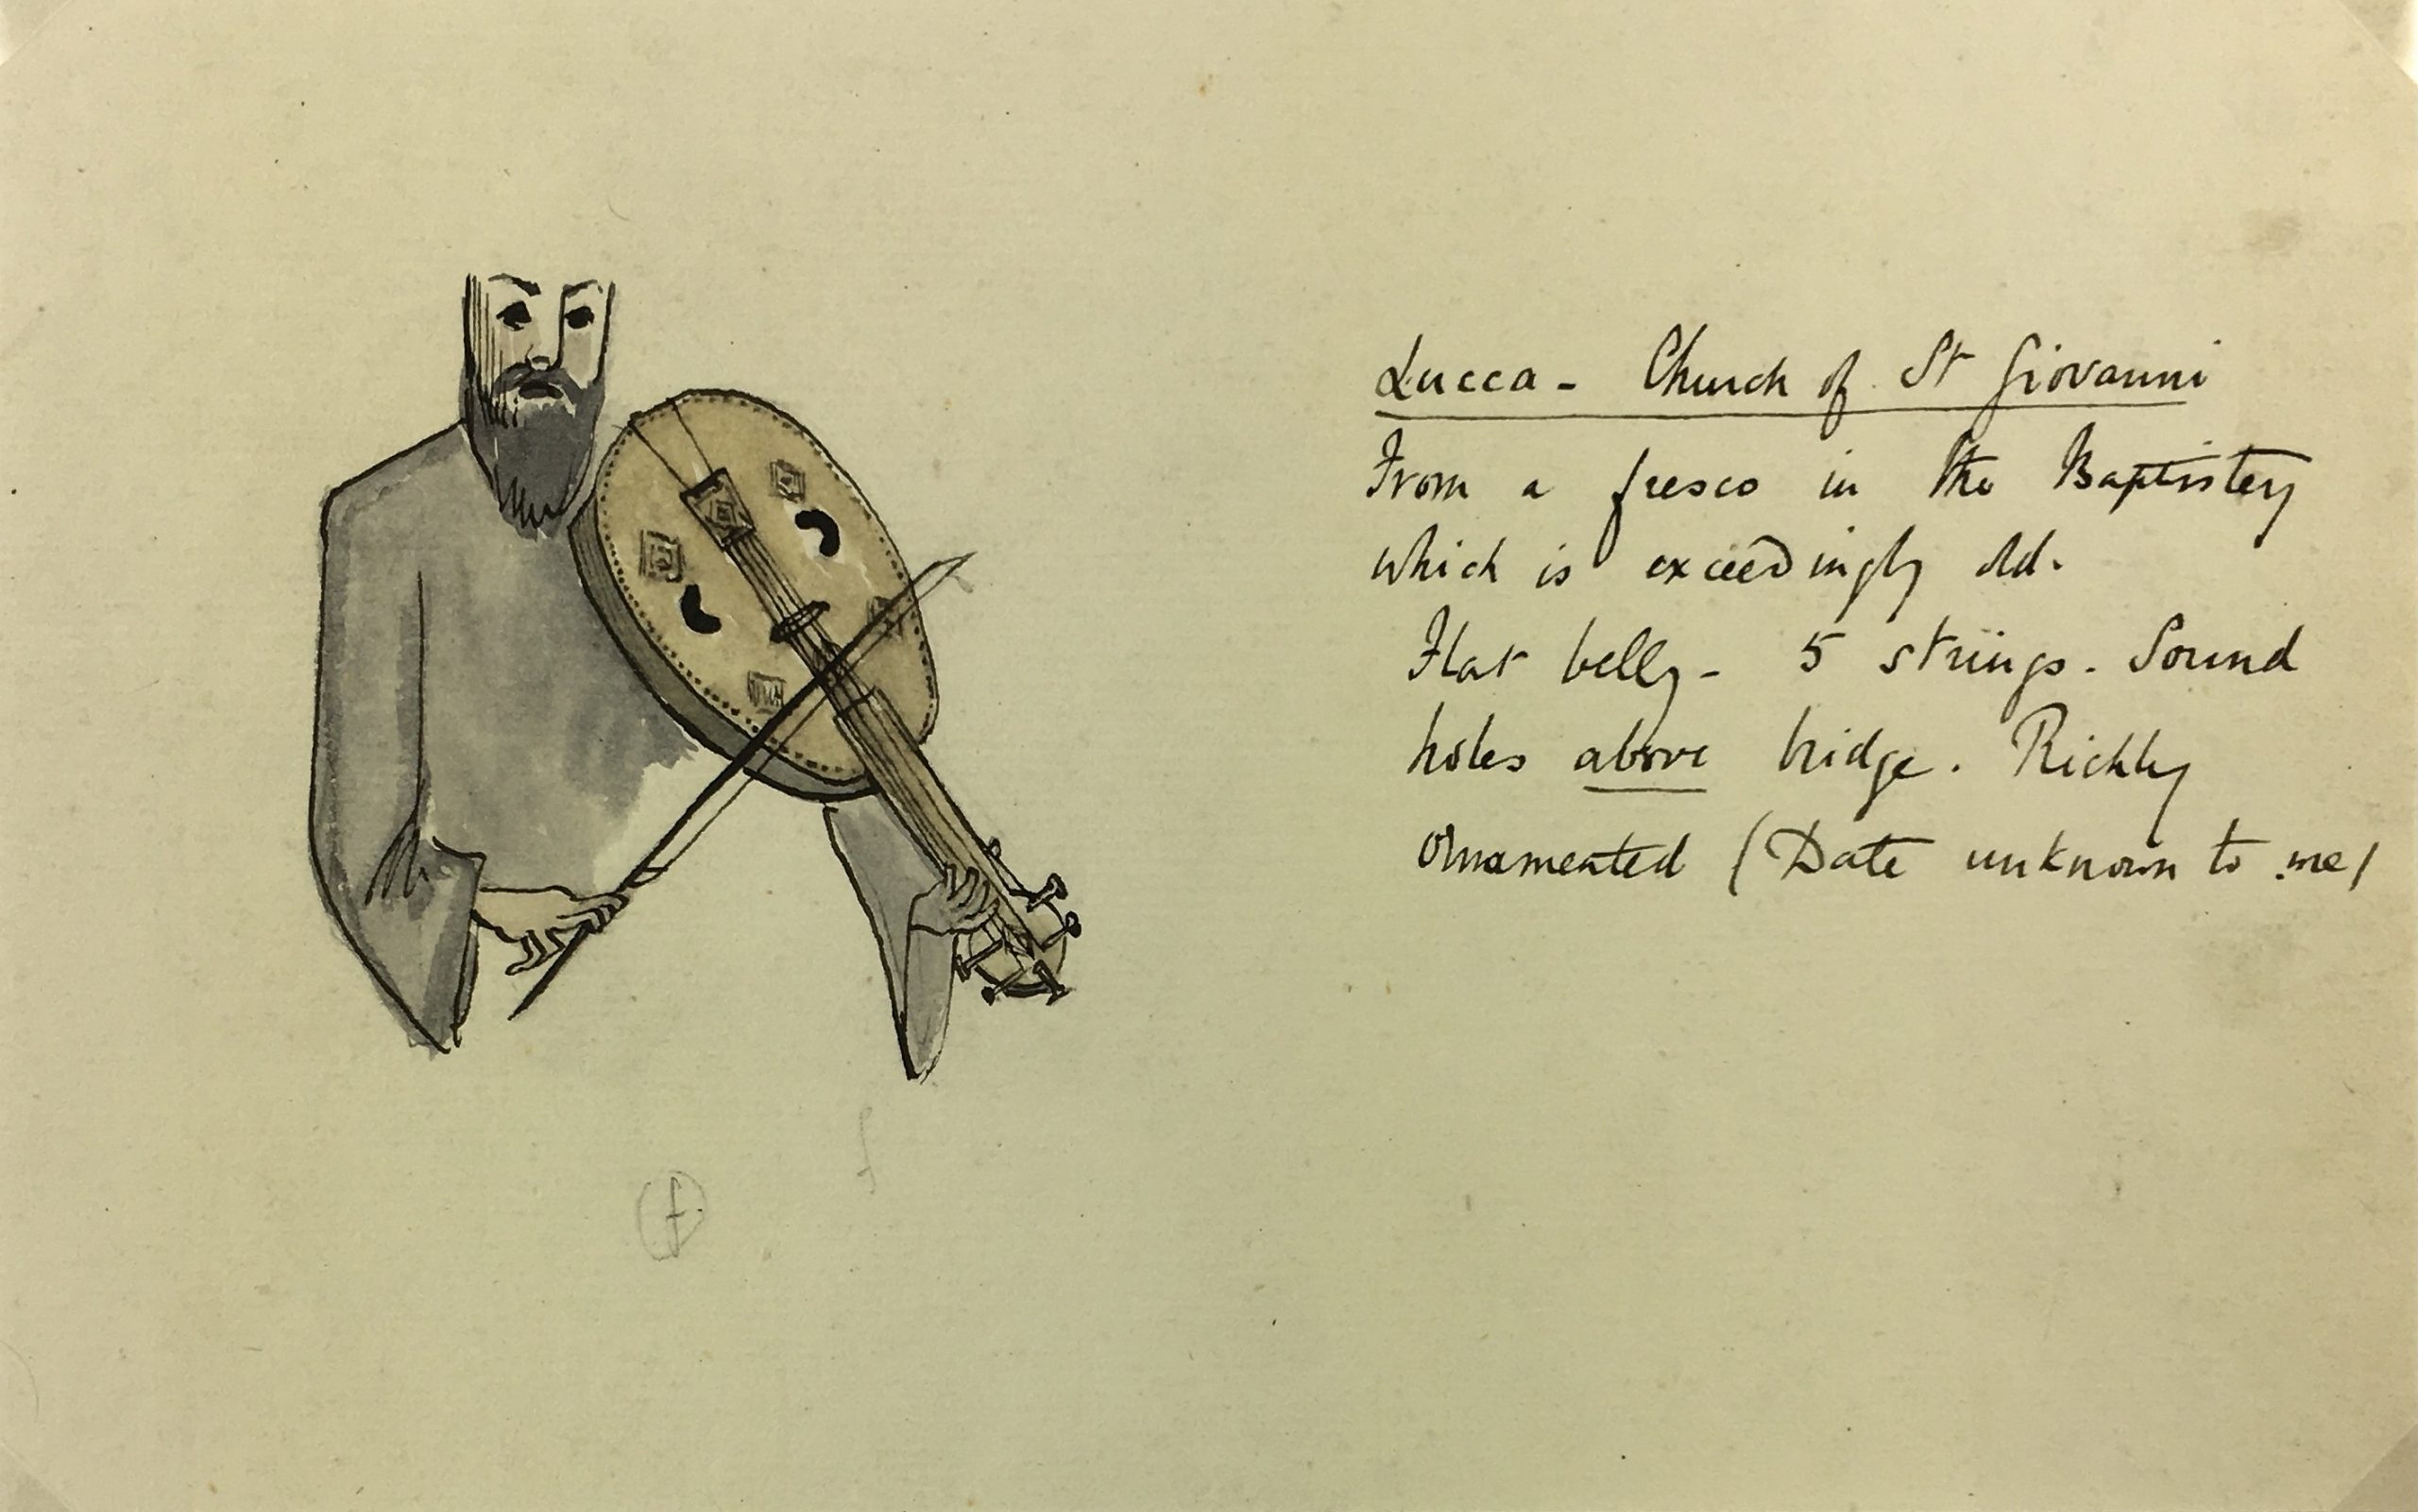 Lucca - Church of St Giovanni
From a fresco in the Baptistery
which is exceedingly old.
Flat belly - 5 strings. Sound
holes above bridge. Richly
ornamented (Date unknown to me)
f
f